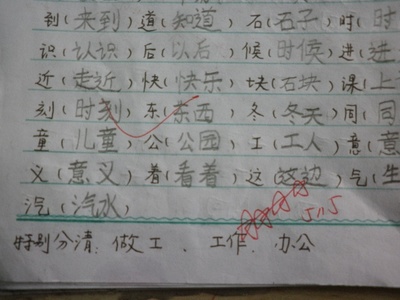 到(来到)道(知道)石(石子)时(时
识(认识)后(以后)候(时候)进(进
近(走近)快(快乐)块(石块)课(上
刻(时刻)东(东西)冬(冬天)同(同
童(儿童)公(公园)工(工人)意(意
义(意义)着(看着)这(这边)气(生
汽(汽水)
5.15
特别分清:做工、工作、办公